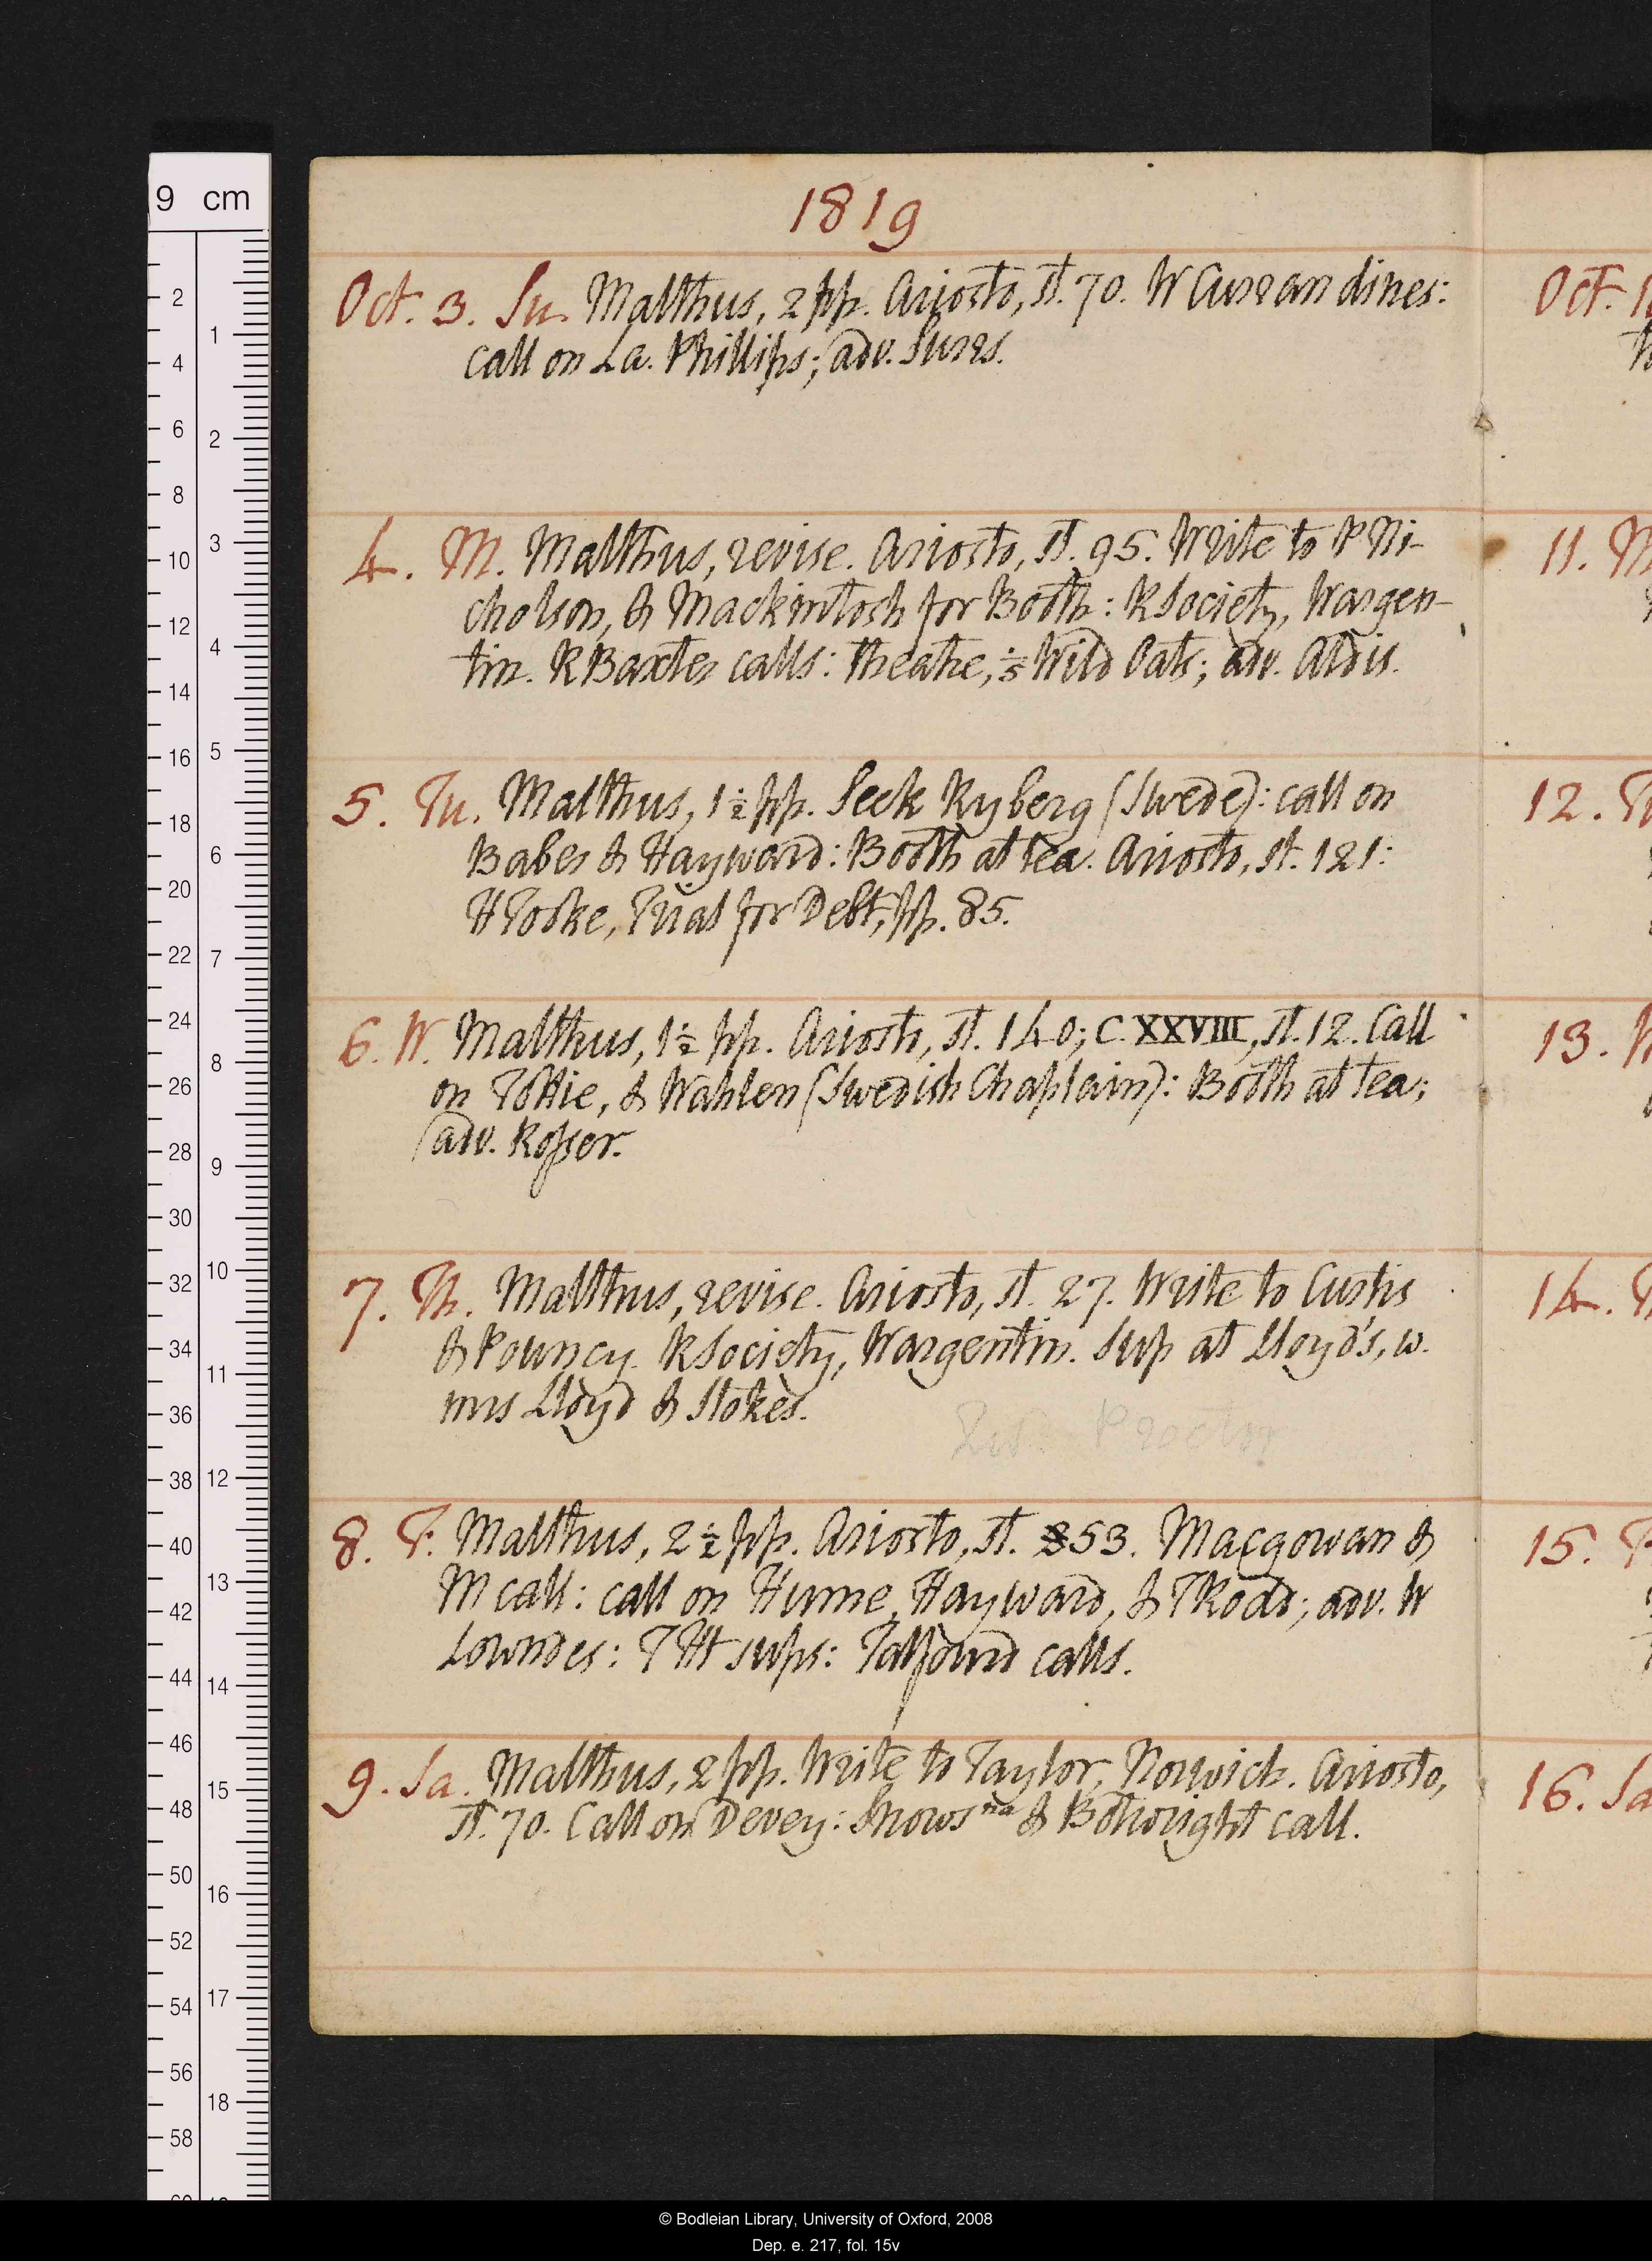 1819
Oct. 3. Su. Malthus, 2 pp. Ariosto, st. 70. W Curran dines:
call on La. Phillips; adv.
4. M. Malthus, revise. Ariosto, st. 95. Write to P Ni-
cholson, & Mackintosh for Booth: R Society, Wargen-
tin. R Baxter calls: theatre, Wild Oats; adv. Aldis.
5. Tu. Malthus, 1½ pp. Seek Ryberg (Swede): call on
Baber & Hayward: Booth at tea. Ariosto, st. 121:
H Tooke, Trial for Debt, pp. 85.
6. W. Malthus, 1½ pp. Ariosto, st. 140; C. XXVIII, st. 12. Call
on Tottie, & Wahlen (Swedish Chaplain): Booth at tea;
adv. Rosser.
7. Th. Malthus, revise. Ariosto, st. 27. Write to Curtis
& Pouncy. R Society, Wargentin. Sup at Lloyd's, w.
mrs Lloyd & Stokes.
Proctor
8. F. Malthus, 2½ pp. Ariosto, st. 53. Macgowan &
M call: call on Hume, Hayward, & T Rodd; adv. W
Lowndes: T Ht sups: Talfourd calls.
9. Sa. Malthus, 2 pp. Write to Taylor, Norwich. Ariosto,
st. 70. Call on Devey: & Botwright call.
Oct. 1
11. M
12. Tu
13. W
14. T
15. F
16. Sa
9 cm
2 4 6 8 10 12 14 16 18 20 22 24 26 28 30 32 34 36 38 40 42 44 46 48 50 52 54 56 58
1 2 3 4 5 6 7 8 9 10 11 12 13 14 15 16 17 18
© Bodleian Library, University of Oxford, 2008
Dep. e. 217, fol. 15v